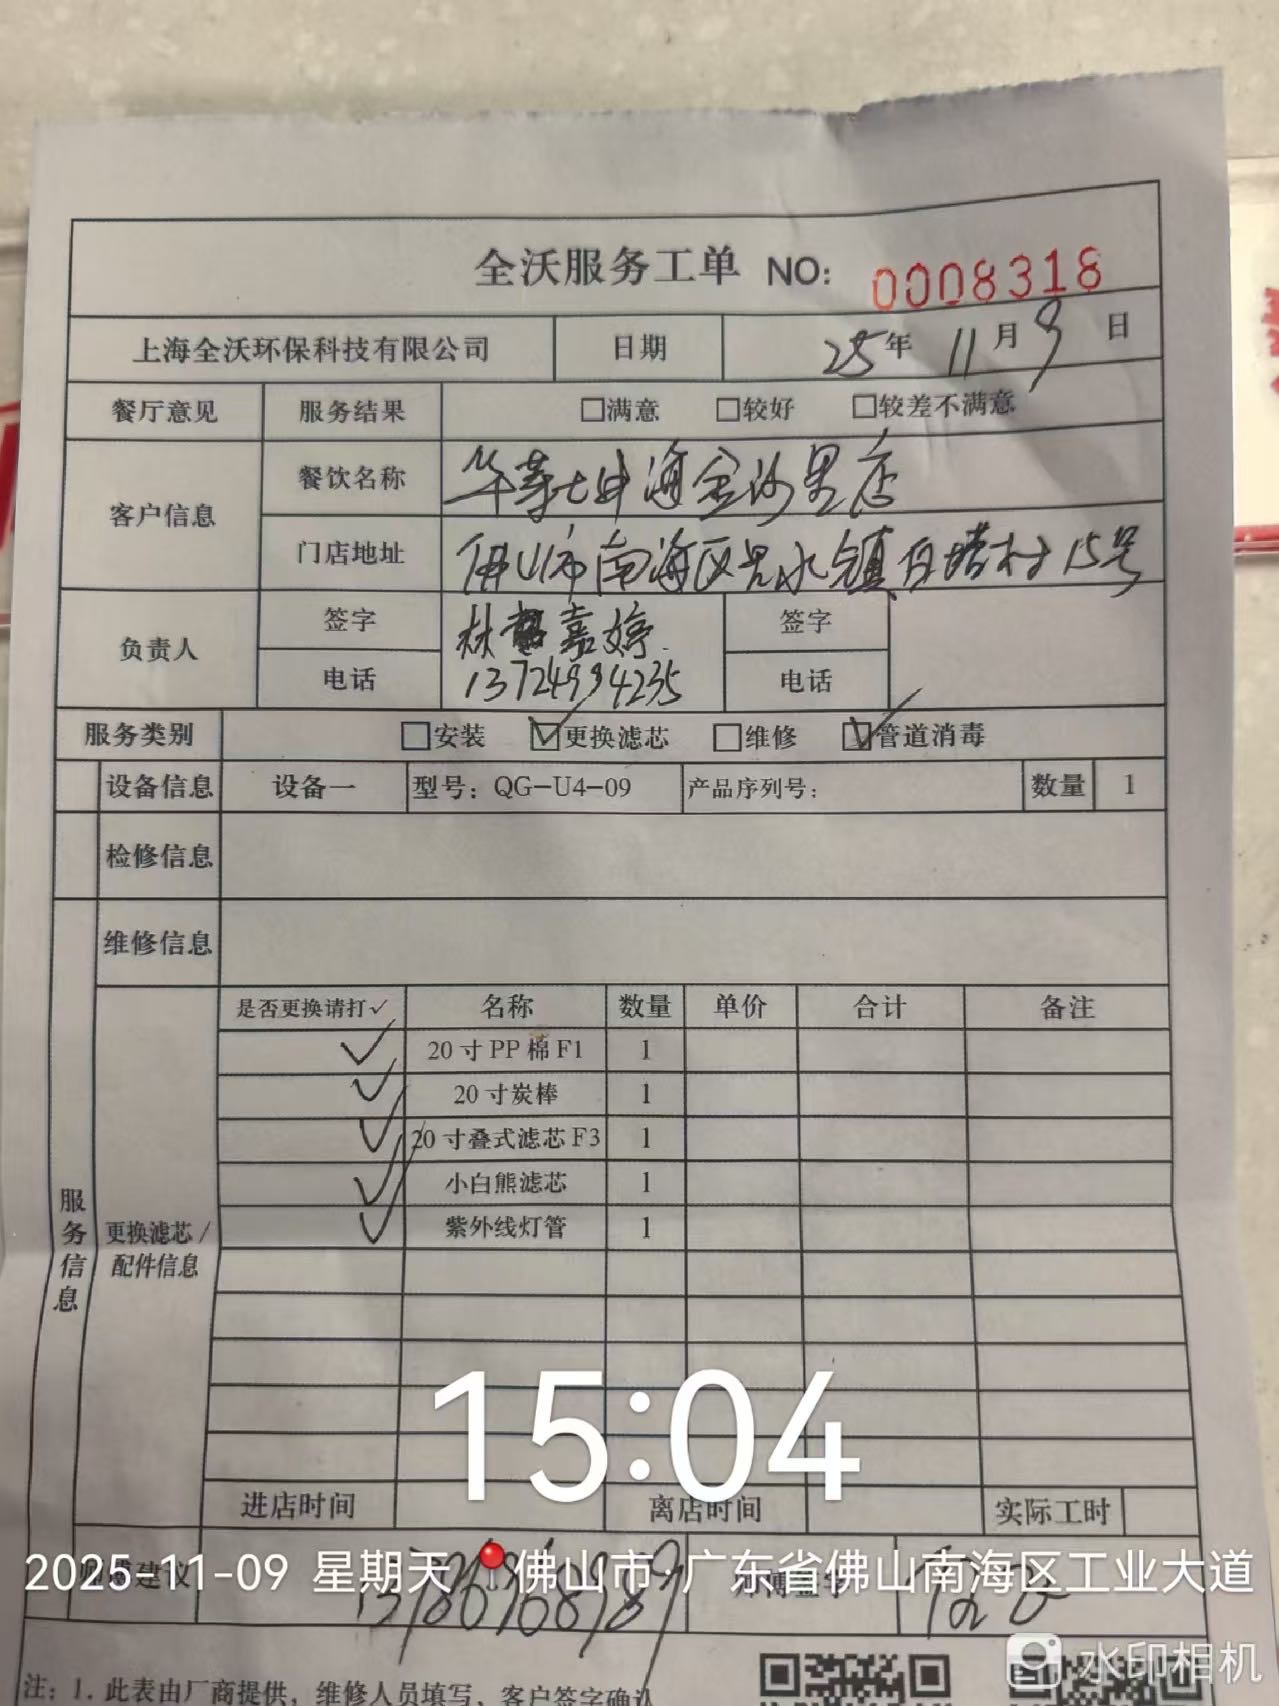 全沃服务工单 NO: 0008318
上海全沃环保科技有限公司 日期 25年 11月 9日
餐厅意见 服务结果 □满意 □较好 □较差不满意
客户信息 餐饮名称 南海金沙里店
门店地址 佛山市南海区里水镇白塔村15号
负责人 签字 林嘉婷 签字
电话 13724994235 电话
服务类别 □安装 ☑更换滤芯 □维修 ☑管道消毒
设备信息 设备一 型号：QG-U4-09 产品序列号： 数量 1
检修信息
维修信息
是否更换请打✓ 名称 数量 单价 合计 备注
✓ 20寸PP棉F1 1
✓ 20寸炭棒 1
✓ 20寸叠式滤芯F3 1
✓ 小白熊滤芯 1
✓ 紫外线灯管 1
服务信息
更换滤芯/
配件信息
15:04
进店时间 离店时间 实际工时
建议
2025-11-09 星期天 佛山市·广东省佛山南海区工业大道
水印相机
注：1. 此表由厂商提供，维修人员填写，客户签字确认